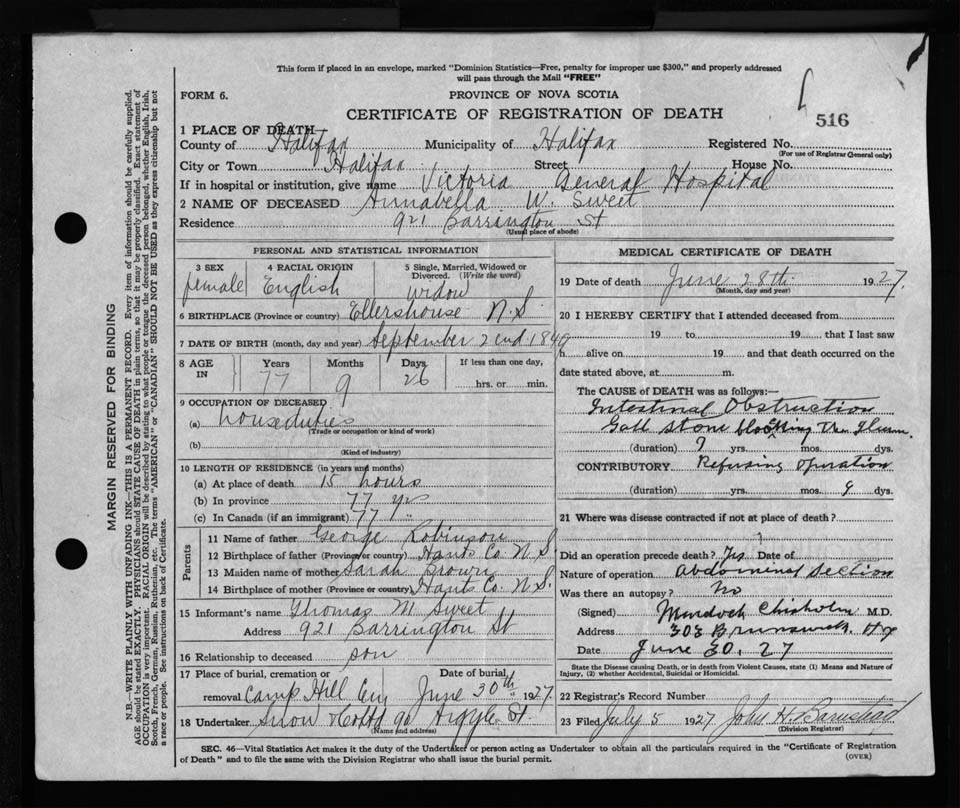 This form if placed in an envelope, marked "Dominion Statistics—Free, penalty for improper use $300," and properly addressed
will pass through the Mail "FREE"
FORM 6.
PROVINCE OF NOVA SCOTIA
516
CERTIFICATE OF REGISTRATION OF DEATH
1 PLACE OF DEATH
County of Halifax Municipality of Halifax Registered No.
(For use of Registrar General only)
City or Town Halifax Street House No.
If in hospital or institution, give name Victoria General Hospital
2 NAME OF DECEASED Annabella W. Sweet
Residence 921 Barrington St
(Usual place of abode)
PERSONAL AND STATISTICAL INFORMATION
3 SEX 4 RACIAL ORIGIN 5 Single, Married, Widowed or
Divorced. (Write the word)
female English widow
6 BIRTHPLACE (Province or country) Ellershouse N.S
7 DATE OF BIRTH (month, day and year) September 2nd 1849
8 AGE IN Years Months Days If less than one day,
77 9 26 hrs. or min.
9 OCCUPATION OF DECEASED
(a) houseduties
(Trade or occupation or kind of work)
(b)
(Kind of industry)
10 LENGTH OF RESIDENCE (in years and months)
(a) At place of death 15 hours
(b) In province 77 yrs
(c) In Canada (if an immigrant) 77 "
Parents
11 Name of father George Robinson
12 Birthplace of father (Province or country) Hants Co N.S
13 Maiden name of mother Sarah Brown
14 Birthplace of mother (Province or country) Hants Co. N.S.
15 Informant's name Thomas M Sweet
Address 921 Barrington St
16 Relationship to deceased son
17 Place of burial, cremation or Date of burial,
removal Camp Hill Cem June 30th 1927
18 Undertaker Snow & Co Ltd 90 Argyle St.
(Name and address)
MEDICAL CERTIFICATE OF DEATH
19 Date of death June 28th 1927.
(Month, day and year)
20 I HEREBY CERTIFY that I attended deceased from
19 to 19 that I last saw
h alive on 19 and that death occurred on the
date stated above, at m.
The CAUSE of DEATH was as follows:—
Intestinal Obstruction
Gall stone blocking the Ileum.
(duration) ? yrs. mos. dys.
CONTRIBUTORY Refusing operation
(duration) yrs. mos. 9 dys.
21 Where was disease contracted if not at place of death?
Did an operation precede death? Yes Date of
Nature of operation Abdominal section
Was there an autopsy? No
(Signed) Murdoch Chisholm M.D.
Address 303 Brunswick. Hx
Date June 30, 27
State the Disease causing Death, or in death from Violent Causes, state (1) Means and Nature of
Injury, (2) whether Accidental, Suicidal or Homicidal.
22 Registrar's Record Number
23 Filed July 5 1927 John H. Barnstead
(Division Registrar)
SEC. 46—Vital Statistics Act makes it the duty of the Undertaker or person acting as Undertaker to obtain all the particulars required in the "Certificate of Registration
of Death" and to file the same with the Division Registrar who shall issue the burial permit.
(OVER)
MARGIN RESERVED FOR BINDING
N.B.—WRITE PLAINLY WITH UNFADING INK—THIS IS A PERMANENT RECORD. Every item of information should be carefully supplied.
AGE should be stated EXACTLY. PHYSICIANS should STATE CAUSE OF DEATH in plain terms, so that it may be properly classified. Exact statement of
OCCUPATION is very important. RACIAL ORIGIN will be described by stating to what people or tongue the deceased person belonged, whether English, Irish,
Scotch, French, German, Russian, Ruthenian, etc. The terms "AMERICAN" or "CANADIAN" SHOULD NOT BE USED as they express citizenship but not
a race or people. See instructions on back of Certificate.